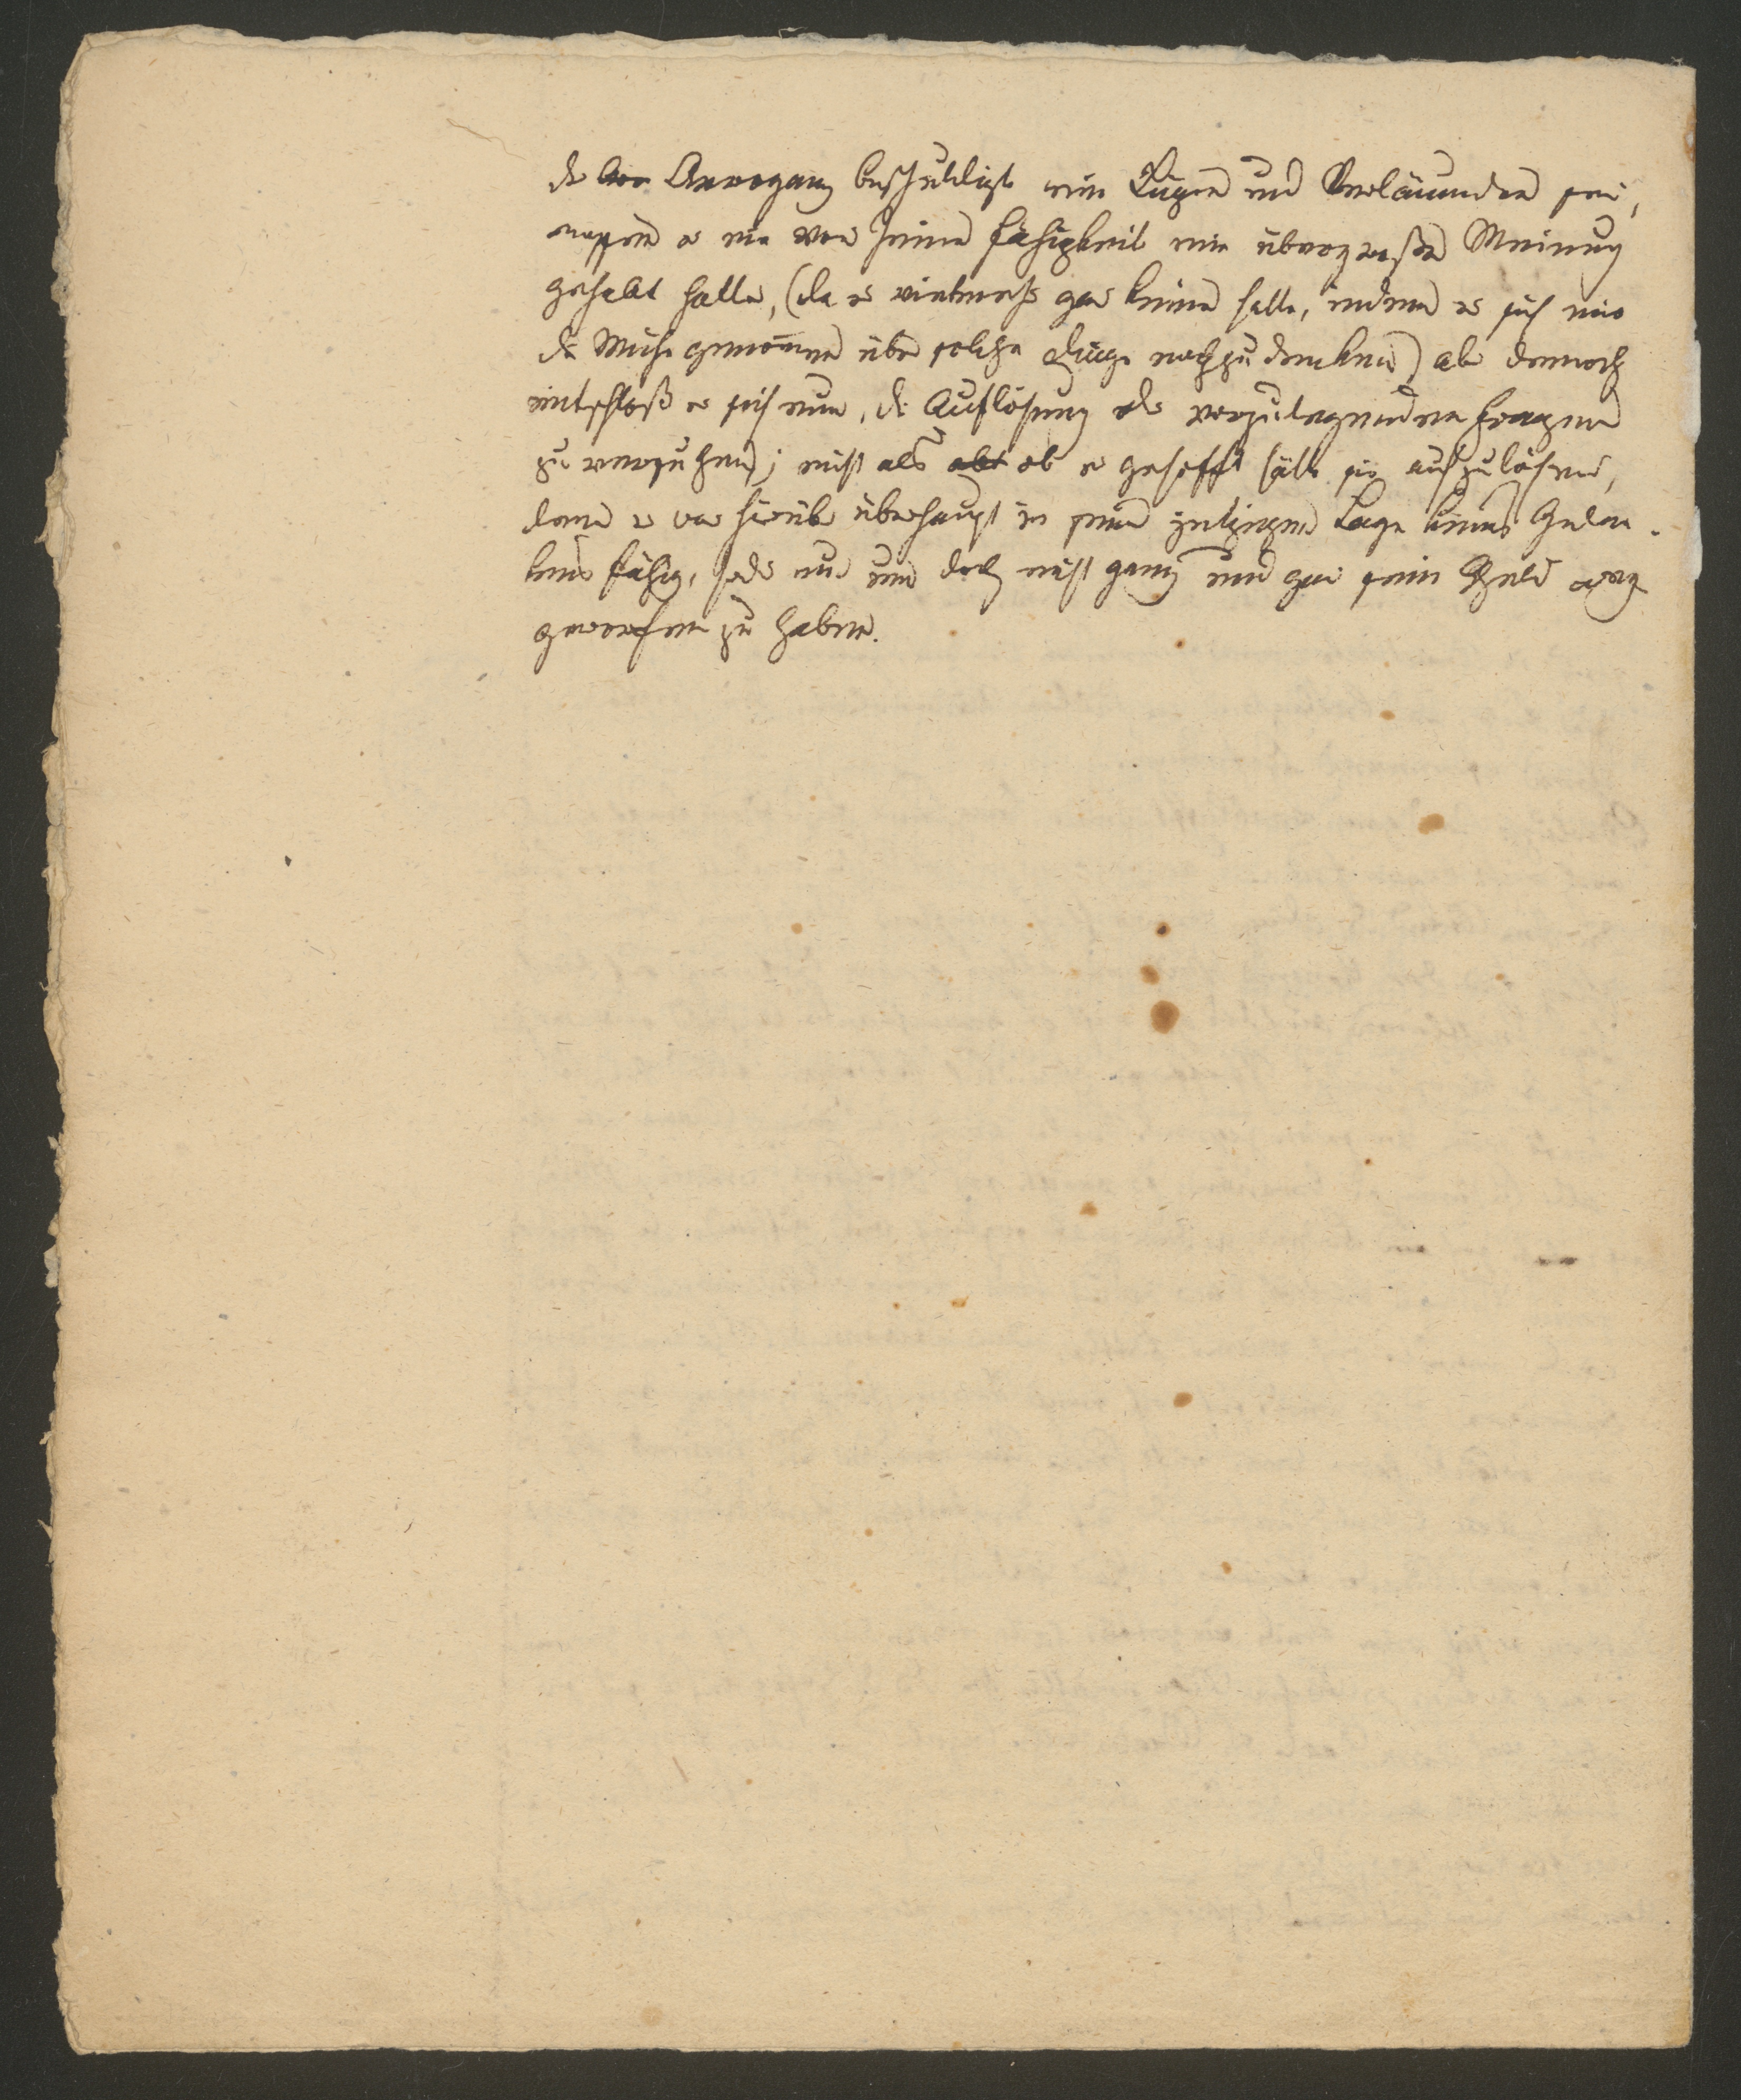 der Arroganz beschuldigt eine Lügen und Verläumder sei,
er nie von seiner Fähigkeit eine übergroßen Meinung
gehabt hatte, (da er vielmehr gar keine hatte, indem er sich nie
die Mühe genommen über solche Dinge nachzudenken) aber dennoch
entschloß er sich nun, die Auflösung der vorzulegenden Fragen
zu versuchen; nicht als ob er gehofft hätte sie aufzulösen,
denn er war hierüber überhaupt in seiner jetzigen Lage keines Gedan-
kens fähig, nur um doch nicht ganz und gar sein Geld weg
geworfen zu haben.